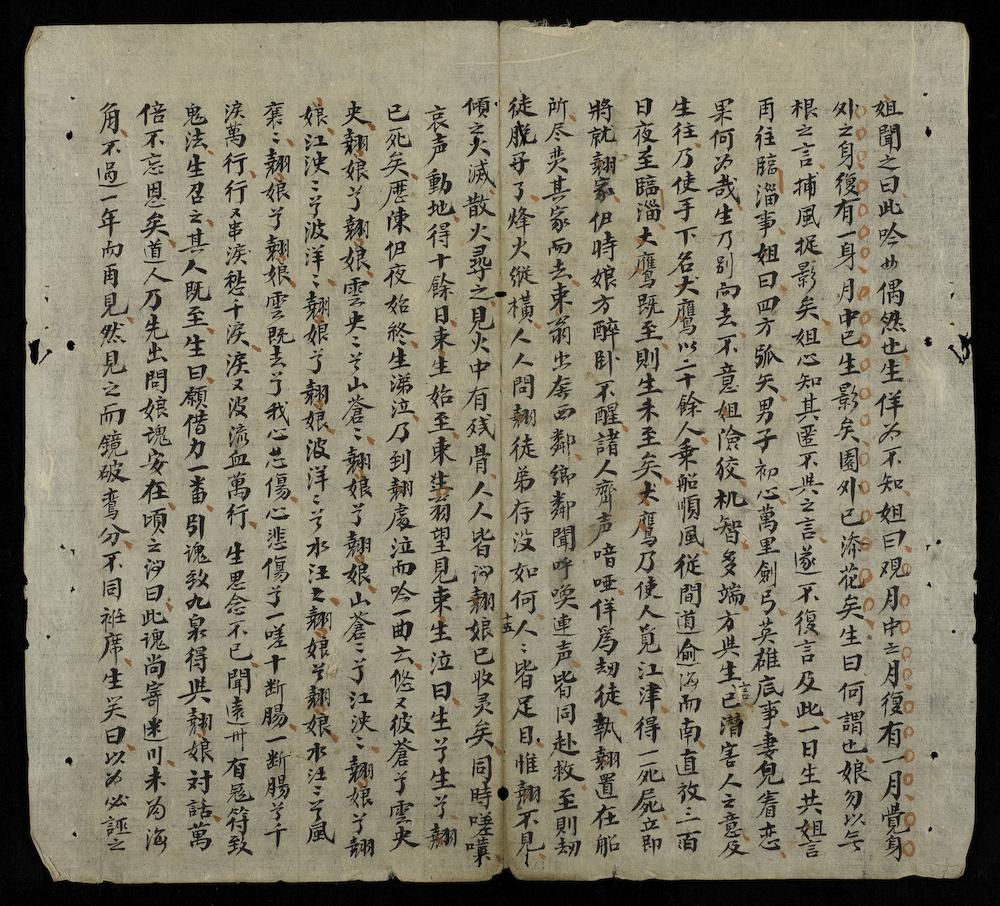 姐聞之曰此吟此偶然也生佯为不知姐曰观月中之月復有一月覺身
外之身復有一身月中巴生影矣園外已添花矣生曰何謂也娘勿以无
根之言捕風捉影矣姐心知其匿不與之言遂不復言及此一日生共姐言
再往臨淄事姐曰四方弧矢男子初心萬里劍弓英雄底事妻兒眷恋
果何为哉生乃别向去不意姐險狡机智多端方與生言已潛害人之意及
生往乃使手下名犬鷹以二十餘人乘船順風從間道逾海而南直放三百
日夜至臨淄犬鷹既至則生未至矣犬鷹乃使人覓江津得一死屍立即
將就翹家但時娘方醉卧不醒諸人齊声喑啞佯爲刼徒執翹置在船
所尽焚其家而去束翁出在西鄰鄉鄰聞呼喚連声皆同赴救至則刼
徒脫身了烽火縱橫人人問翹徒弟存没如何人〻皆足目惟翹不見
十五
傾之火滅散火尋之見火中有残骨人人皆謂翹娘已收灵矣同時嗟嘆
哀声動地得十餘日束生始至束生翁望見束生泣曰生兮生兮翹
已死矣歷陳但夜始終生涕泣乃到翹處泣而吟一曲云悠又彼蒼兮雲央
央翹娘兮翹娘雲央〻兮山蒼〻翹娘兮翹娘山蒼〻兮江泱〻翹娘兮翹
娘江泱〻兮波洋〻翹娘兮翹娘波洋〻兮水汪〻翹娘兮翹娘水汪〻兮風
褭〻翹娘兮翹娘雲既去兮我心悲傷心悲傷兮一嗟十断腸一断腸兮千
淚萬行行又串淚愁千淚淚又波流血萬行生思念不已聞遠卅有冠符致
鬼法生召之其人既至生曰願借力一番引魂致九泉得與翹娘对話萬
倍不忘恩矣道人乃先出問娘魂安在頃之謂曰此魂尚寄迷川未为海
角不過一年而再見然見之而鏡破鸞分不同袵席生关曰以为必誣之